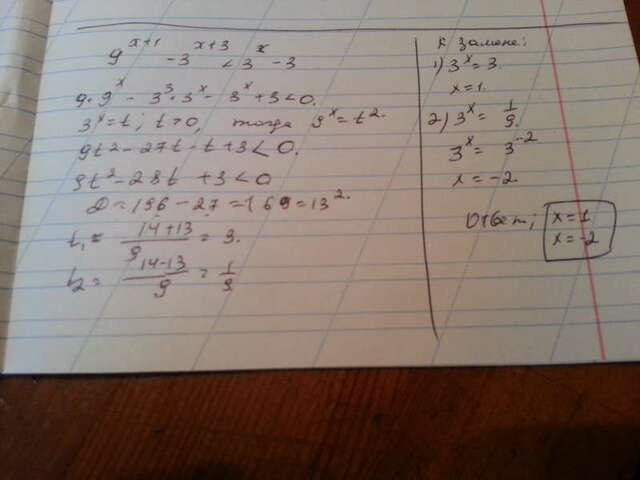 9^{x+1} - 3^{x+3} < 3^x - 3
9·9^x - 3^3·3^x - 3^x + 3 < 0.
3^x = t; t > 0, тогда 9^x = t^2.
9t^2 - 27t - t + 3 < 0.
9t^2 - 28t + 3 < 0
D = 196 - 27 = 169 = 13^2.
t_1 = \frac{14+13}{9} = 3.
t_2 = \frac{14-13}{9} = \frac{1}{9}
К замене:
1) 3^x = 3.
x = 1.
2) 3^x = \frac{1}{9}.
3^x = 3^{-2}
x = -2.
Ответ; x = 1
x = -2